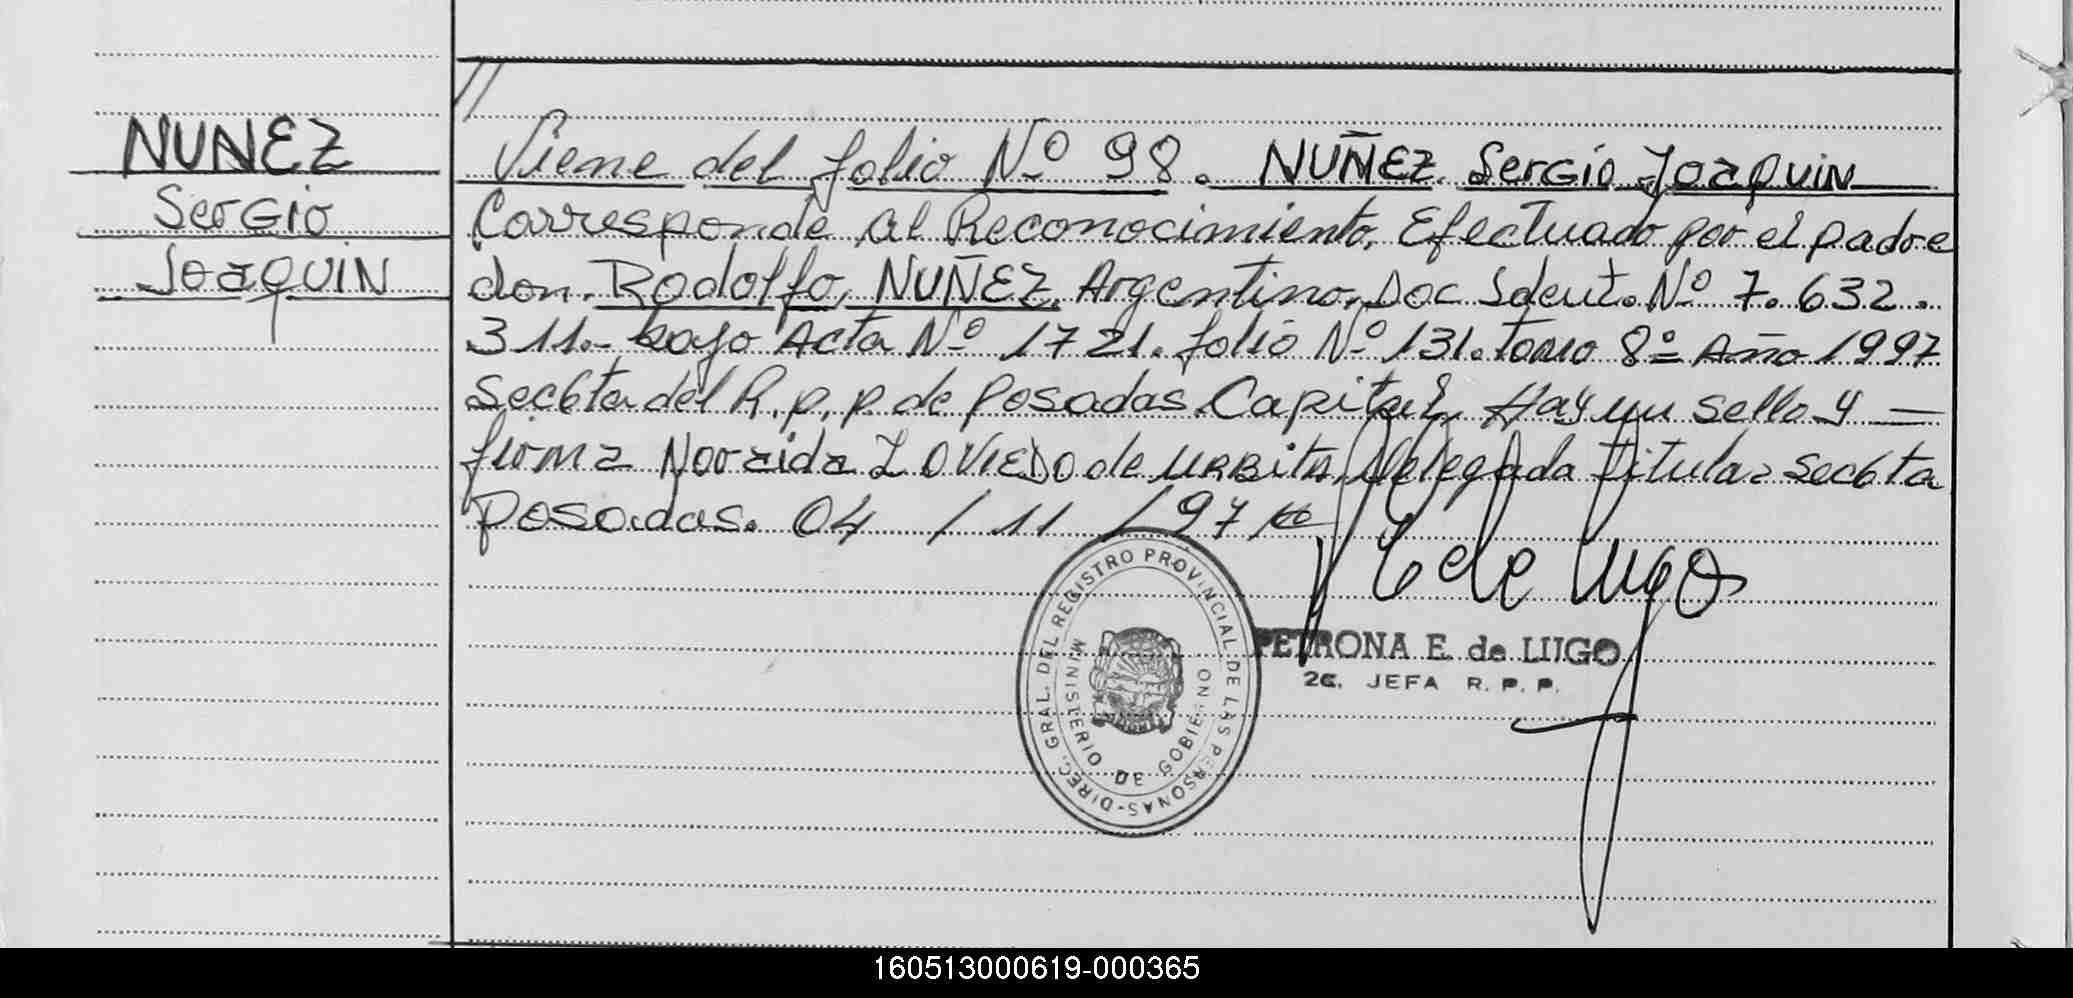 NUNEZ
Sergio
Joaquin
//
Viene del folio Nº 98. NUÑEZ Sergio Joaquin
Corresponde al Reconocimiento, Efectuado por el padre
don. Rodolfo, NUÑEZ. Argentino, Doc Ident. Nº 7.632.
311.- bajo Acta Nº 1721. folio Nº 131. tomo 8º Año 1997
Sec6ta del R.p.p. de Posadas. Capital, Hay un sello y =
firma Noraida L OVIEDO de URBITA, Delegada titular sec6ta
Posadas. 04 / 11 / 97
E de Lugo
DIREC. GRAL. DEL REGISTRO PROVINCIAL DE LAS PERSONAS-
MINISTERIO DE GOBIERNO
PETRONA E. de LUGO
2a. JEFA R. P. P.
160513000619-000365